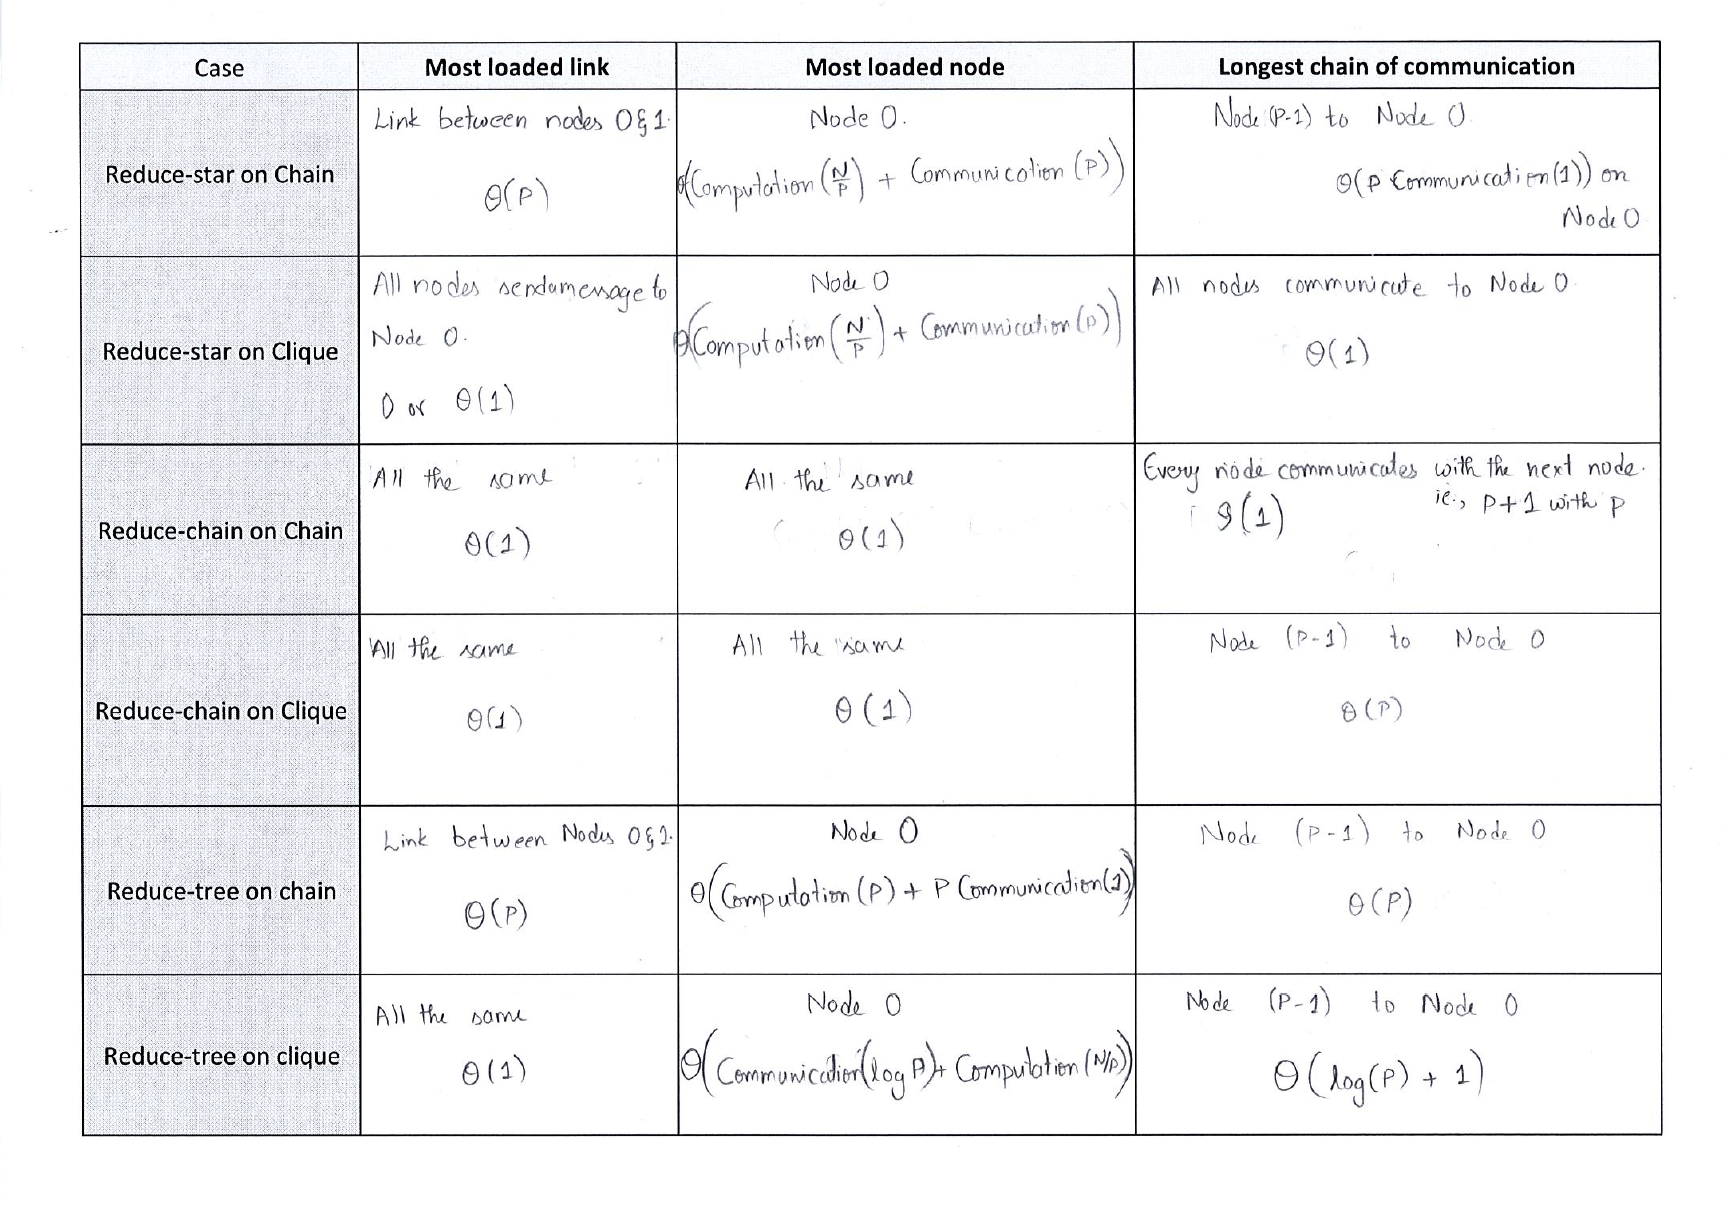 Case Most loaded link Most loaded node Longest chain of communication
Reduce-star on Chain
Link between nodes 0 & 1.
Θ(P)
Node 0.
Θ(Computation (N/P) + Communication (P))
Node (P-1) to Node 0.
Θ(P Communication(1)) on
Node 0
Reduce-star on Clique
All nodes send a message to
Node 0.
0 or Θ(1)
Node 0
Θ(Computation (N/P) + Communication (P))
All nodes communicate to Node 0.
Θ(1)
Reduce-chain on Chain
All the same
Θ(1)
All the same
Θ(1)
Every node communicates with the next node.
ie., P+1 with P
Θ(1)
Reduce-chain on Clique
All the same
Θ(1)
All the same
Θ(1)
Node (P-1) to Node 0
Θ(P)
Reduce-tree on chain
Link between Nodes 0 & 1.
Θ(P)
Node 0
Θ(Computation (P) + P Communication(1))
Node (P-1) to Node 0
Θ(P)
Reduce-tree on clique
All the same
Θ(1)
Node 0
Θ(Communication(log P) + Computation (N/P))
Node (P-1) to Node 0
Θ(log(P) + 1)